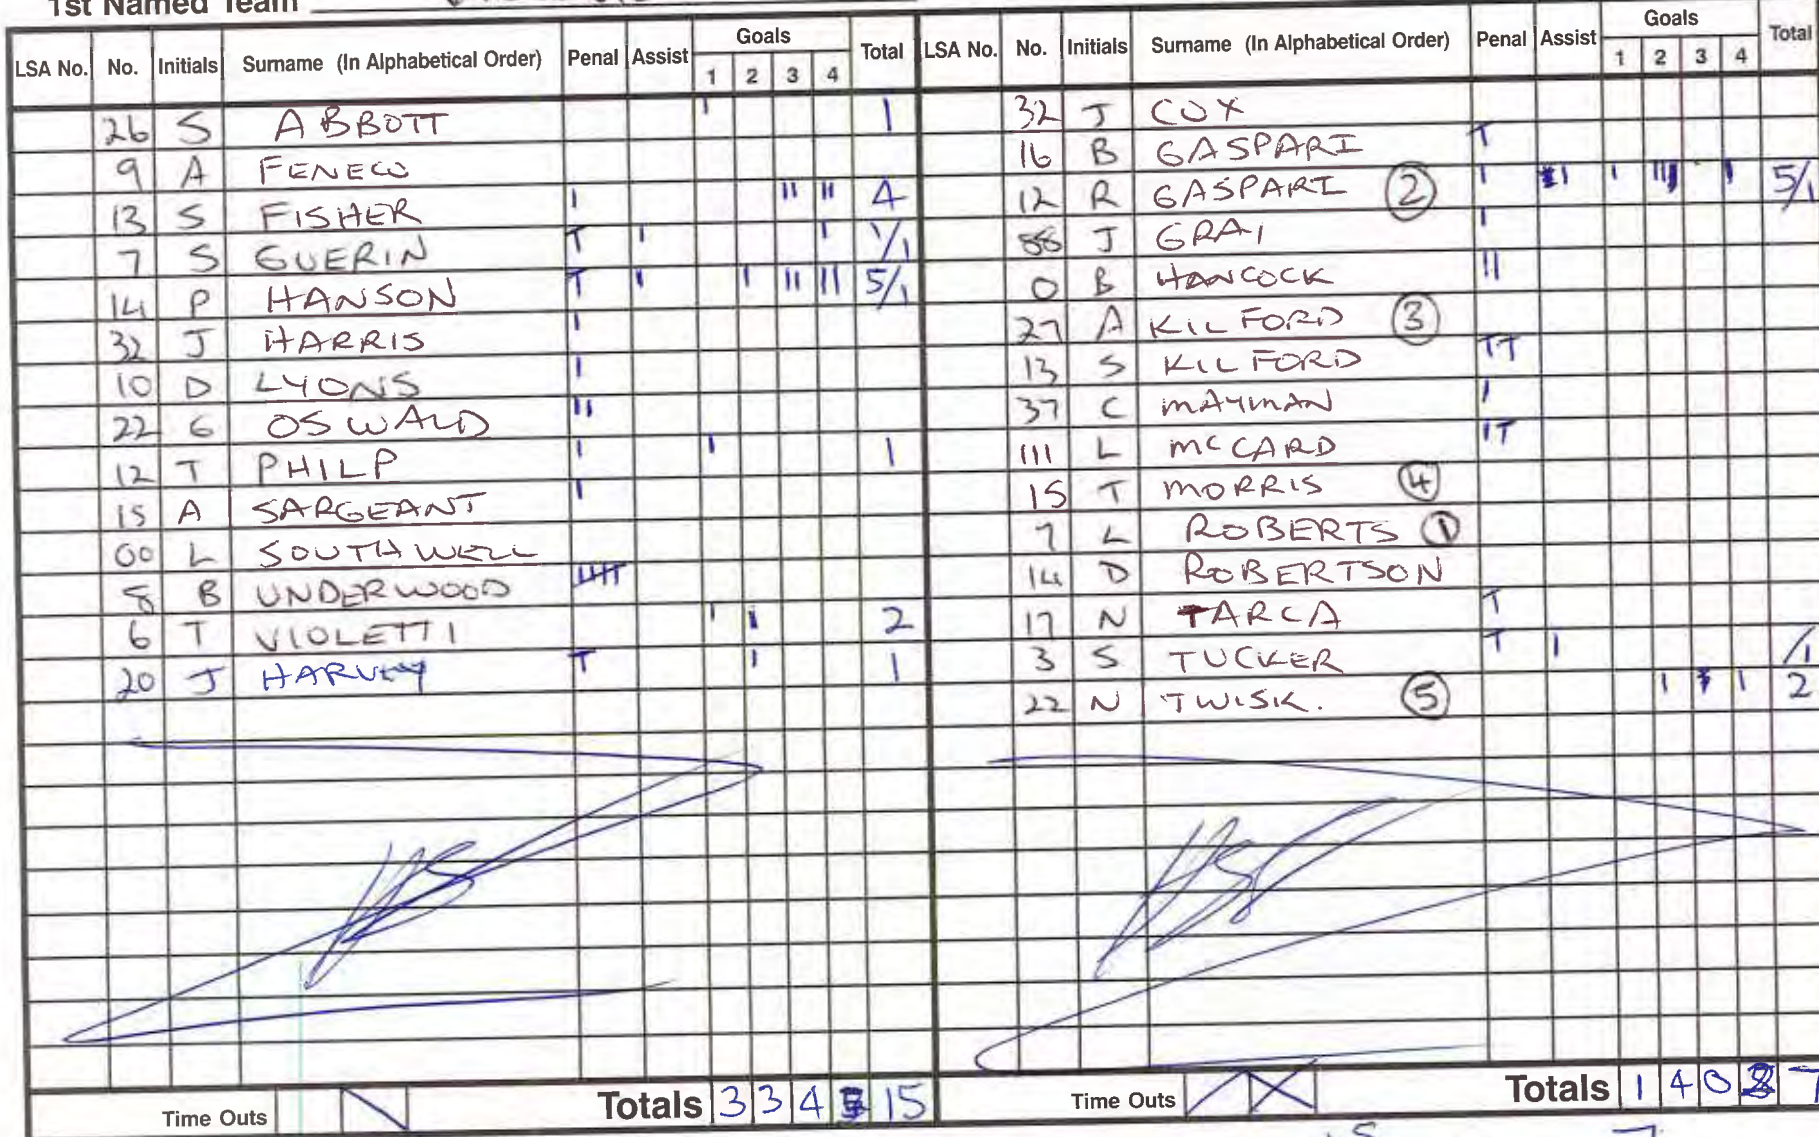 1st Named Team
LSA No. No. Initials Surname (In Alphabetical Order) Penal Assist Goals 1 2 3 4 Total
26 S ABBOTT I 1
9 A FENECH
13 S FISHER I II II 4
7 S GUERIN T I I 1/1
14 P HANSON T I I II II 5/1
32 J HARRIS I
10 D LYONS I
22 G OSWALD II
12 T PHILP I I 1
15 A SARGEANT I
00 L SOUTHWELL
8 B UNDERWOOD
6 T VIOLETTI I I 2
20 J HARVEY T I 1
Time Outs Totals 3 3 4 15
LSA No. No. Initials Surname (In Alphabetical Order) Penal Assist Goals 1 2 3 4 Total
32 J COX
16 B GASPARI T
12 R GASPARI 2 I I I III I 5/1
88 J GRAI I
0 B HANCOCK II
27 A KILFORD 3
13 S KILFORD TT
37 C MAYMAN I
111 L McCARD IT
15 T MORRIS 4
7 L ROBERTS 1
14 D ROBERTSON
17 N TARCA T
3 S TUCKER T I /1
22 N TWISK. 5 I I 2
Time Outs Totals 1 4 0 2 7